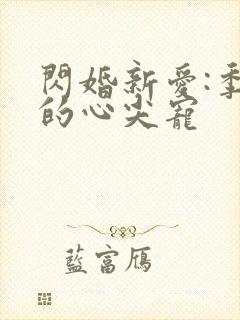 閃婚新愛:季
的心尖寵
藍富鴈